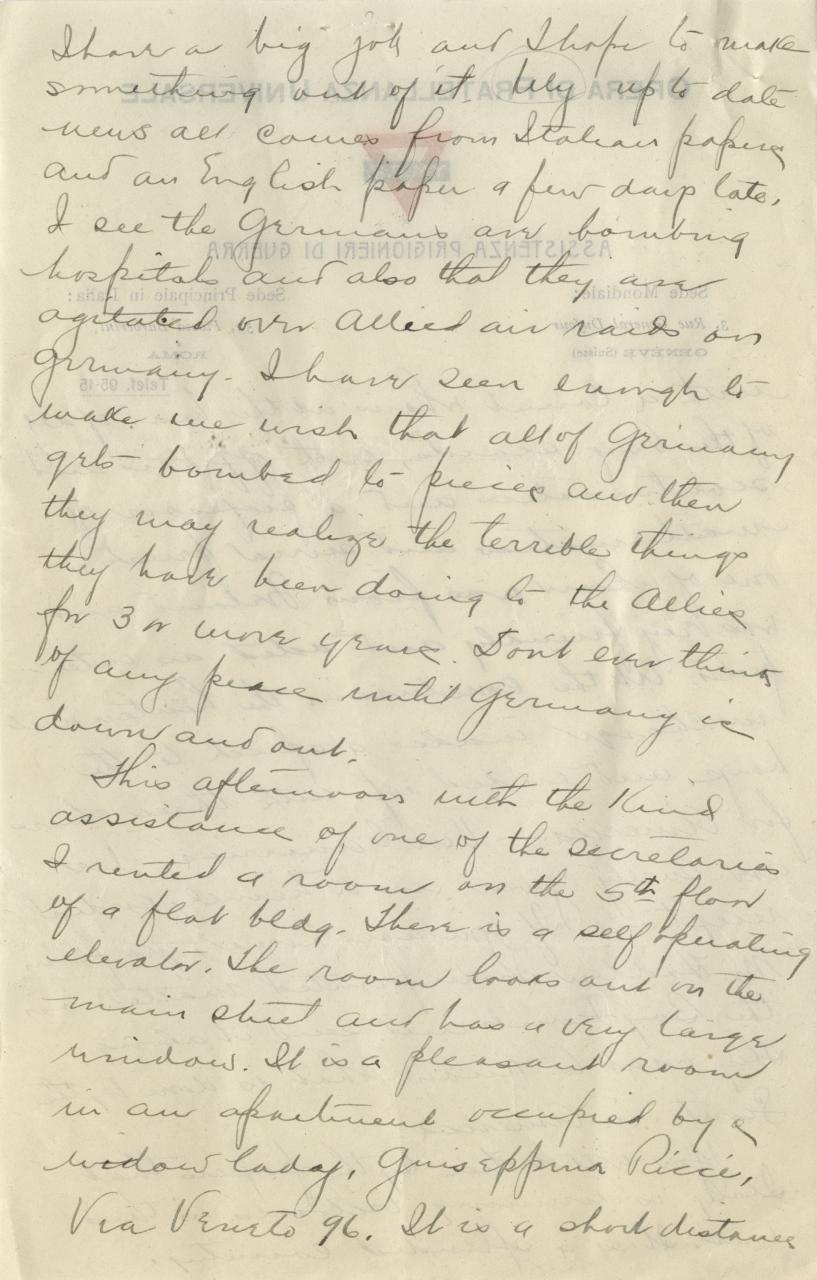 I have a big job and I hope to make
something out of it. My up to date
news all comes from Italian papers
and an English paper a few days late.
I see the Germans are bombing
hospitals and also that they are
agitated over Allied air raids on
Germany. I have seen enough to
make me wish that all of Germany
gets bombed to pieces and then
they may realize the terrible things
they have been doing to the Allies
for 3 or more years. Don't ever think
of any peace until Germany is
down and out.
This afternoon with the kind
assistance of one of the secretaries
I rented a room on the 5th floor
of a flat bldg. There is a self operating
elevator. The room looks out on the
main street and has a very large
window. It is a pleasant room
in an apartment occupied by a
widow lady, Guiseppina Ricci,
Via Veneto 96. It is a short distance
OPERA DI FRATELLANZA UNIVERSALE
ASSISTENZA PRIGIONIERI DI GUERRA
Sede Mondiale:
3, Rue General Dufour
GENÈVE (Suisse)
Sede Principale in Italia:
ROMA
Telef. 95-15